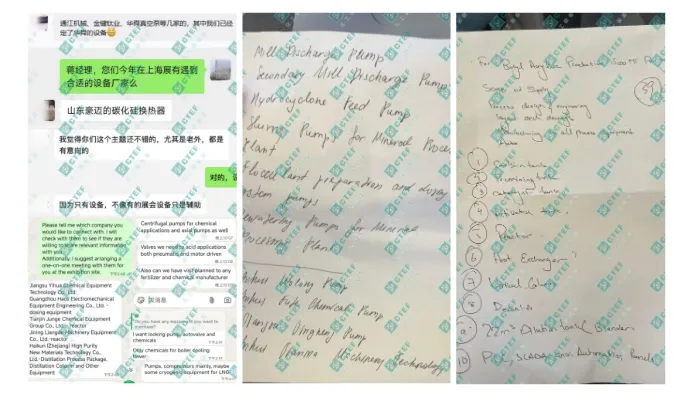 通江机械、金键钛业、华舜真空泵等几家的，其中我们已经定了华舜的设备
蒋经理，您们今年在上海展有遇到合适的设备厂家么
山东豪迈的碳化硅换热器
我觉得你们这个主题还不错的，尤其是老外，都是有意向的
对的，
因为只有设备，不像有的展会设备只是辅助
Please tell me which company you would like to connect with. I will check with them to see if they are willing to share relevant information with you.
Additionally, I suggest arranging a one-on-one meeting with them for you at the exhibition site.
Jiangsu Yihua Chemical Equipment Technology Co., Ltd.
Guangzhou Haoli Electromechanical Equipment Engineering Co., Ltd. -dosing equipment
Tianjin Junge Chemical Equipment Group Co., Ltd. -reactor
Jining Liangde Machinery Equipment Co., Ltd. -reactor
Haikun (Zhejiang) High Purity New Materials Technology Co., Ltd.-Distillation Process Package, Distillation Column and Other Equipment
Centrifugal pumps for chemical applications and axial pumps as well
Valves we need to acid applications both pneumatic and motor driven
Also can we have visit planned to any fertilizer and chemical manufacturer
发消息
Do you have any equipment you want to purchase?
I want looking pump, autovalve and chemicals
Only chemicals for boiler cooling tower
Pumps, compressors mainly, maybe some cryogenic equipment for LNG
Mill Discharge Pump
Secondary Mill Discharge Pump
Hydrocyclone Feed Pump
Slurry Pumps for Mineral Process
Plant
Flocculant preparation and dosing
system pumps
Dewatering Pumps for Mineral
Processing Plant
Anhui Wolong Pump
Anhui Fufa Chemical Pump
Jiangsu Dingheng Pump
Anhui Machinery Technology
For Butyl Acrylate Production
Scope of Supply
Process design & engineering
layout and
Manufacturing all process equipment
39
1
2 Premixing tank
3 Catalyst tank
4
5 Reactor
6 Heat Exchanger
7 Vertical Column
8
9 22m³ Dilution tank & Blender
10 PLC, SCADA and Automation Panels
CTEF